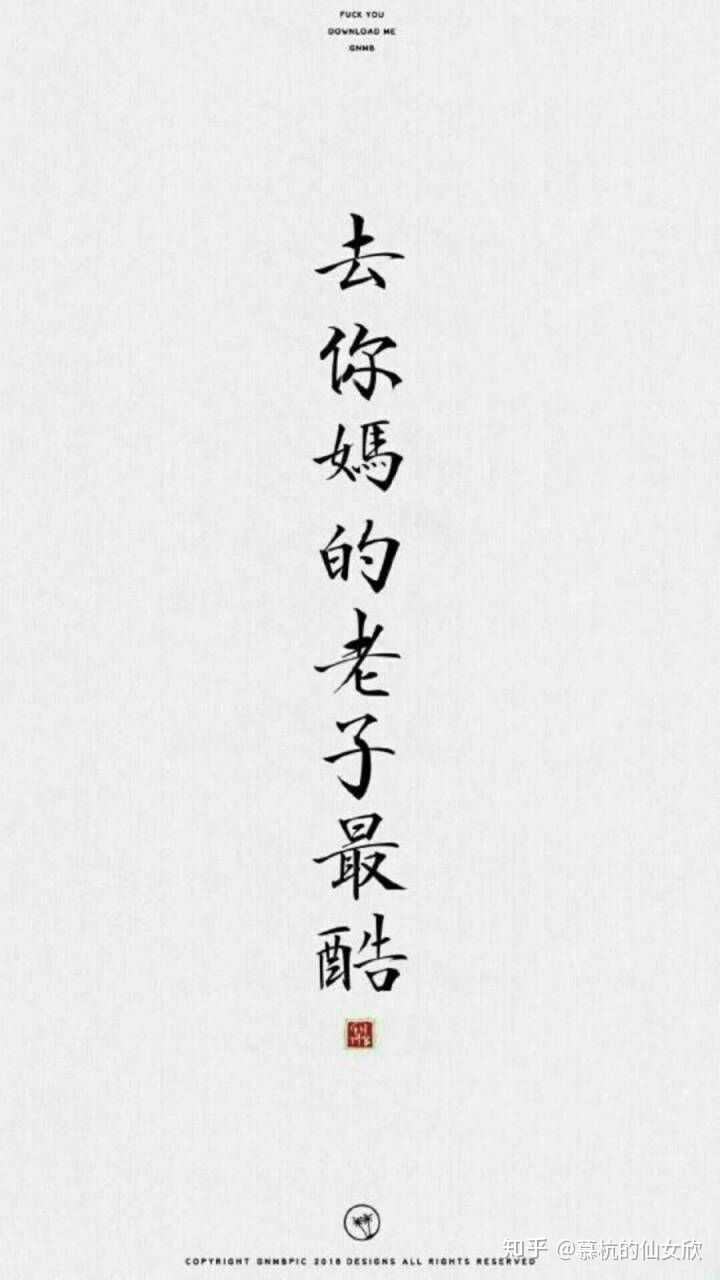 FUCK YOU
DOWNLOAD ME
GNMB
去你媽的老子最酷
COPYRIGHT GNMBPIC 2018 DESIGNS ALL RIGHTS RESERVED
知乎 @慕杭的仙女欣